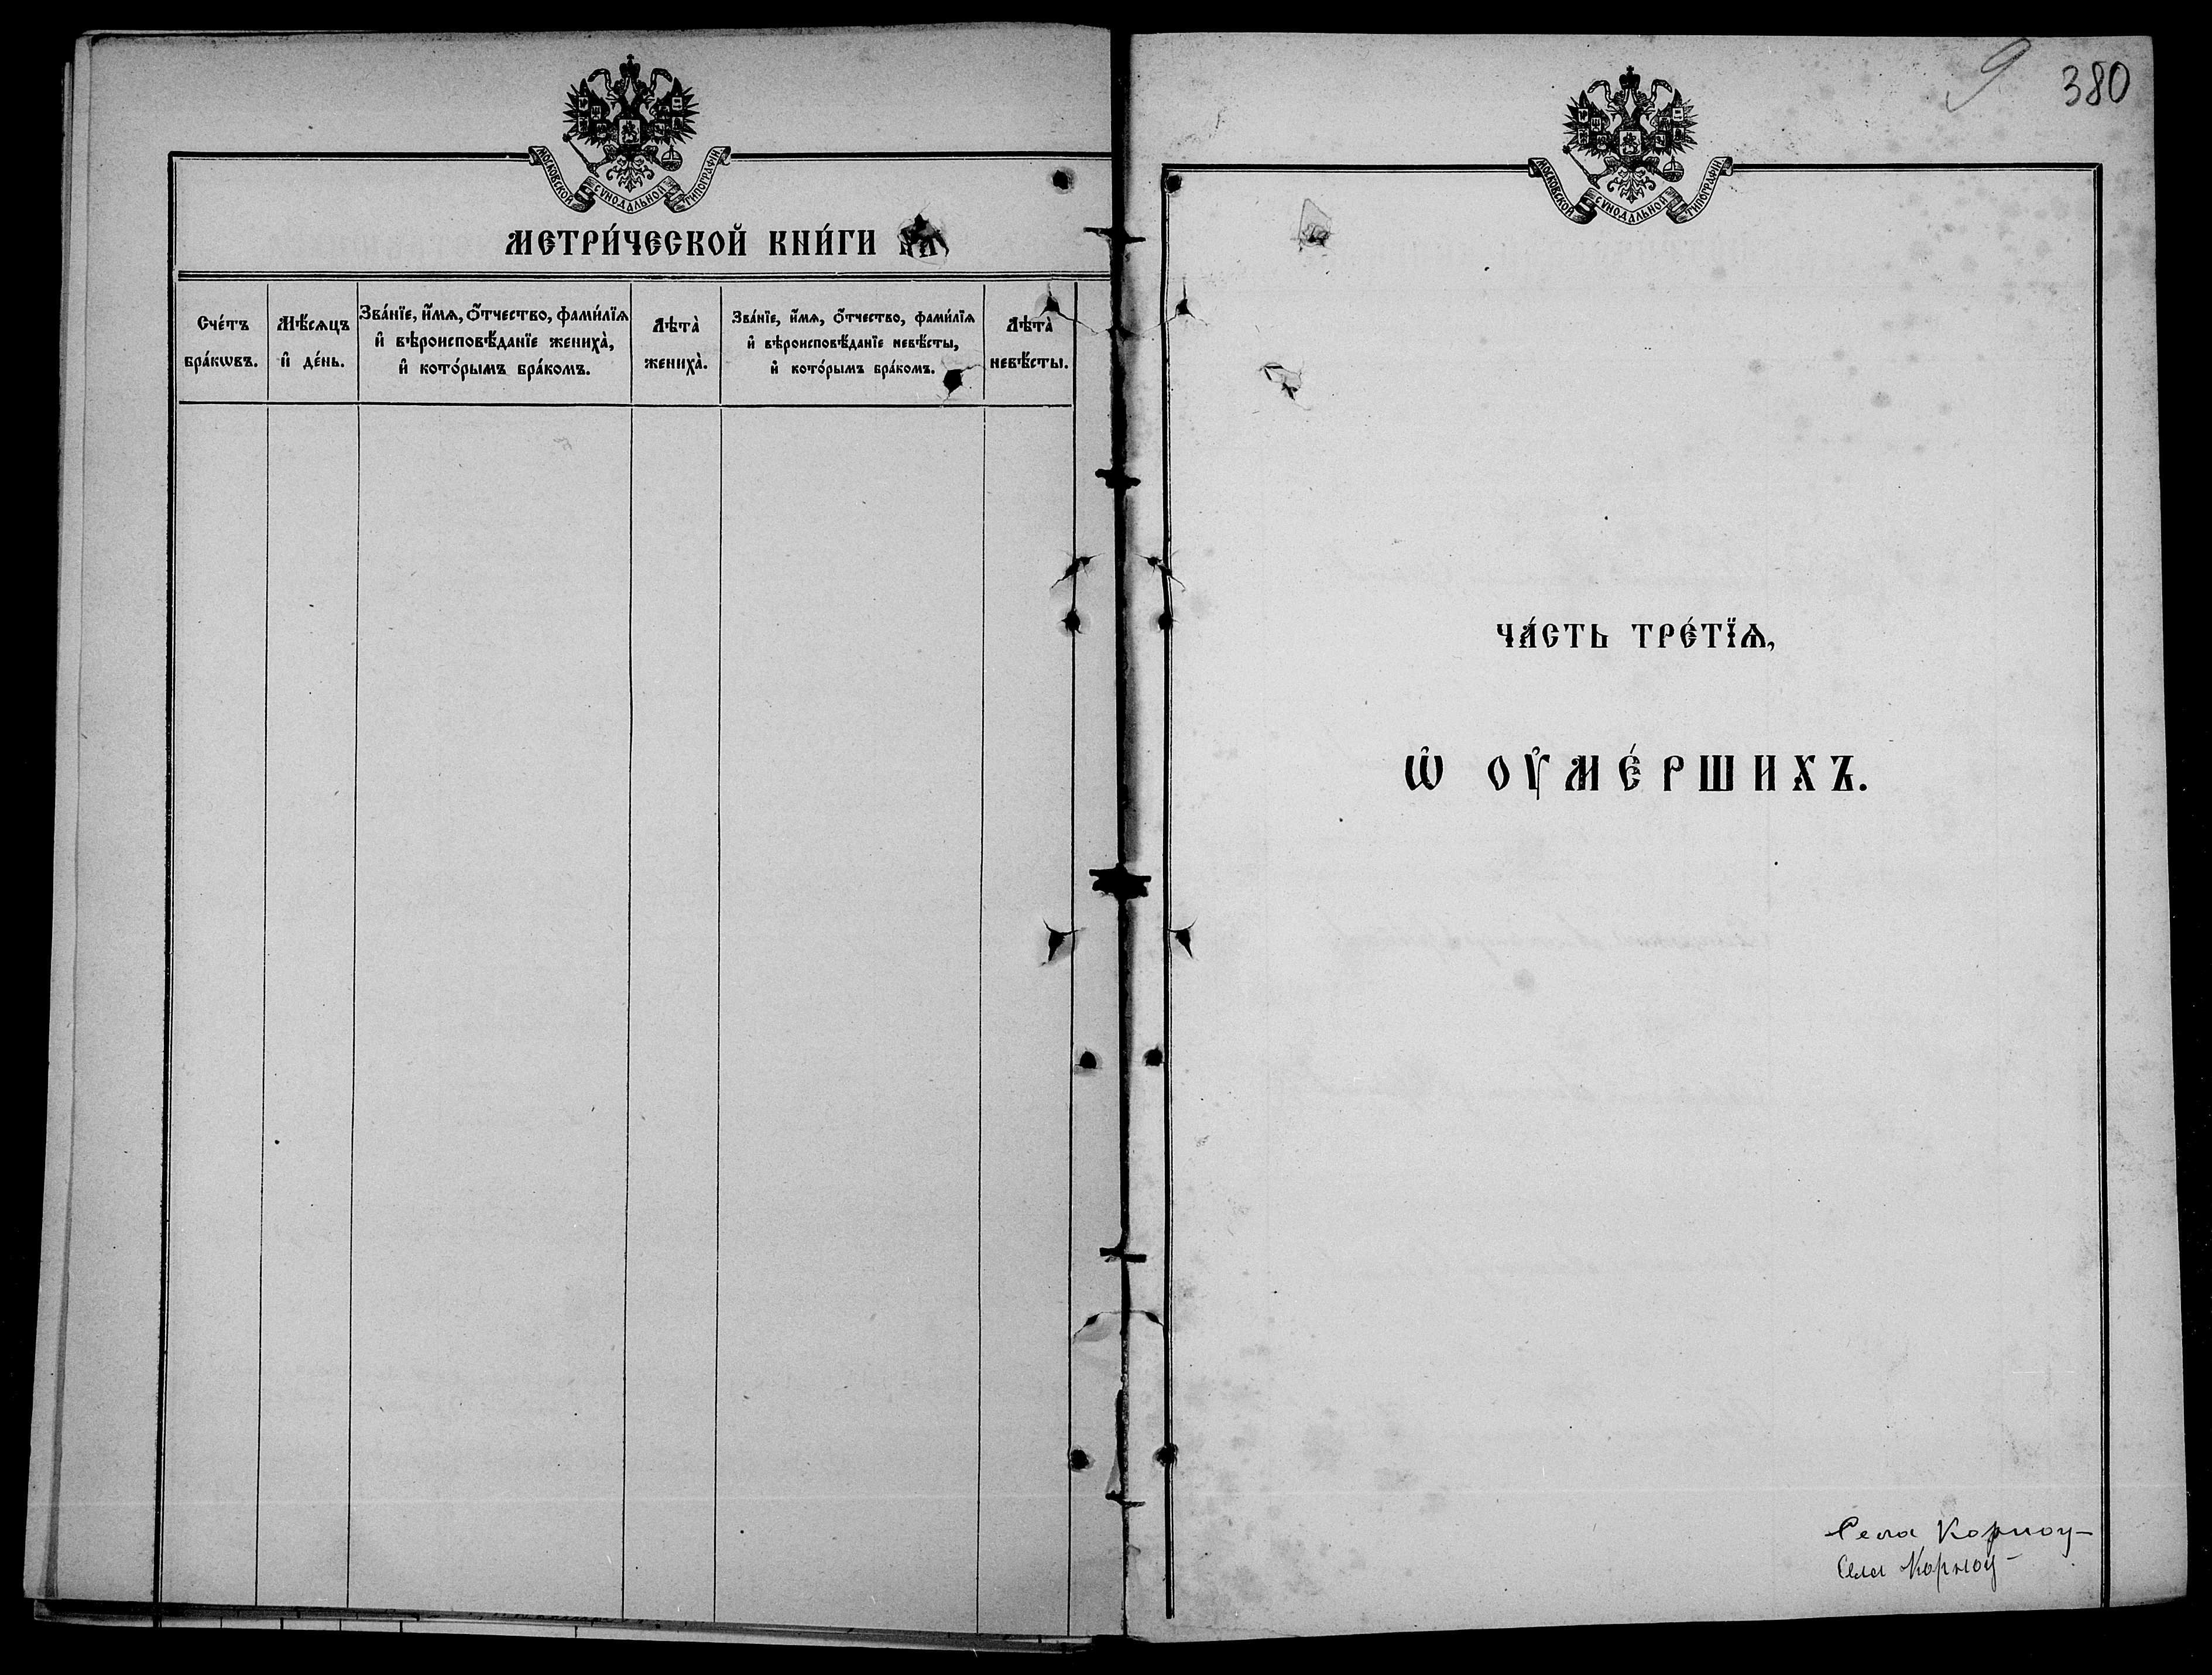 МОСКОВСКОЙ СѴНОДАЛЬНОЙ ТИПОГРАФІИ
МЕТРИ́ЧЕСКОЙ КНИ́ГИ НА
Сче́тъ бра́кѡвъ.
Мѣ́сѧцъ и҆ де́нь.
Зва́нїе, и҆́мѧ, ѻ҆́тчество, фами́лїѧ
и҆ вѣроисповѣ́данїе жениха̀,
и҆ кото́рымъ бра́комъ.
Лѣта̀ жениха̀.
Зва́нїе, и҆́мѧ, ѻ҆́тчество, фами́лїѧ
и҆ вѣроисповѣ́данїе невѣ́сты,
и҆ кото́рымъ бра́комъ.
Лѣта̀ невѣ́сты.
9 380
МОСКОВСКОЙ СѴНОДАЛЬНОЙ ТИПОГРАФІИ
ЧА́СТЬ ТРЕ́ТЇѦ,
Ѡ҆ ОУ҆МЕ́РШИХЪ.
Села Корноу-
Села Корноу-